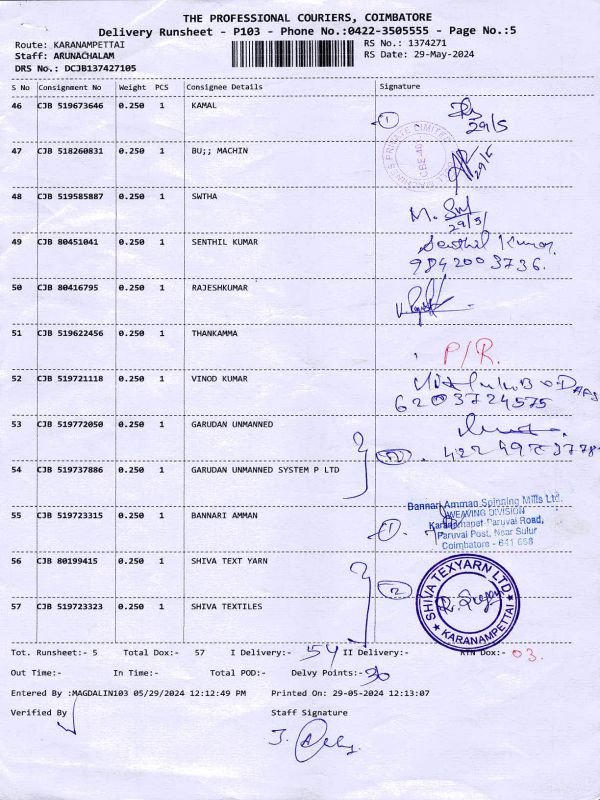 THE PROFESSIONAL COURIERS, COIMBATORE
Delivery Runsheet - P103 - Phone No.:0422-3505555 - Page No.:5
Route: KARANAMPETTAI RS No.: 1374271
Staff: ARUNACHALAM RS Date: 29-May-2024
DRS No.: DCJB137427105
S No Consignment No Weight PCS Consignee Details Signature
46 CJB 519673646 0.250 1 KAMAL 1
29/5
47 CJB 518260831 0.250 1 BU;; MACHIN
29/5
48 CJB 519585887 0.250 1 SWTHA M.
29/5/
49 CJB 80451041 0.250 1 SENTHIL KUMAR Senthil Kumar
9842003736.
50 CJB 80416795 0.250 1 RAJESHKUMAR
51 CJB 519622456 0.250 1 THANKAMMA P/R.
52 CJB 519721118 0.250 1 VINOD KUMAR
6203724575
53 CJB 519772050 0.250 1 GARUDAN UNMANNED
54 CJB 519737886 0.250 1 GARUDAN UNMANNED SYSTEM P LTD
55 CJB 519723315 0.250 1 BANNARI AMMAN 1
Bannari Amman Spinning Mills Ltd.
WEAVING DIVISION
Karanampet-Paruvai Road,
Paruvai Post, Near Sulur
Coimbatore - 641 658
56 CJB 80199415 0.250 1 SHIVA TEXT YARN 2
SHIVA TEXYARN LTD
KARANAMPETTAI
57 CJB 519723323 0.250 1 SHIVA TEXTILES
Tot. Runsheet:- 5 Total Dox:- 57 I Delivery:- 54 II Delivery:- RTN Dox:- 03.
Out Time:- In Time:- Total POD:- Delvy Points:- 30
Entered By :MAGDALIN103 05/29/2024 12:12:49 PM Printed On: 29-05-2024 12:13:07
Verified By Staff Signature